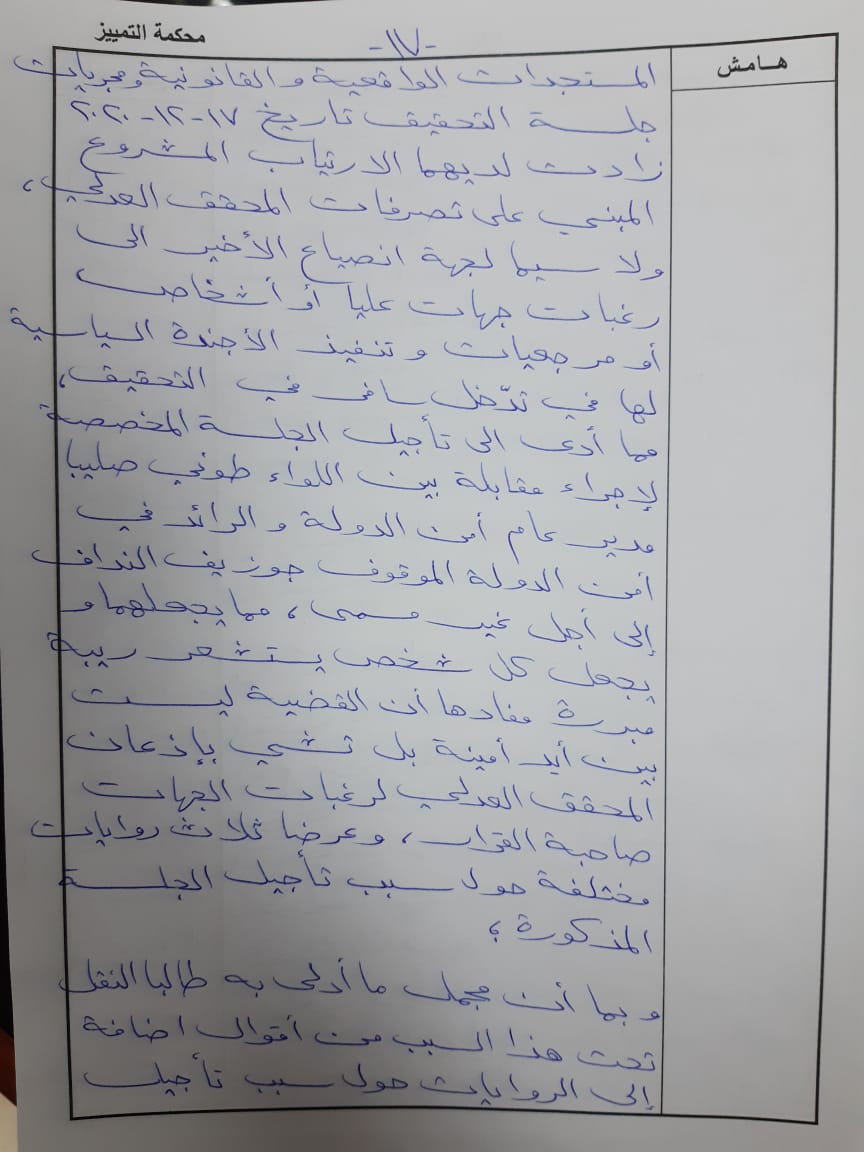 محكمة التمييز
-١٧-
هامش
المستجدات الواقعية والقانونية ومجريات
جلسة التحقيق تاريخ ١٧-١٢-٢٠٢٠
زادت لديهما الارتياب المشروع
المبني على تصرفات المحقق العدلي،
ولا سيما لجهة انصياع الأخير الى
رغبات جهات عليا أو أشخاص
أو مرجعيات وتنفيذ الأجندة السياسية
لها في تدّخل سافر في التحقيق،
مما أدى الى تأجيل الجلسة المخصصة
لإجراء مقابلة بين اللواء طوني صليبا
مدير عام أمن الدولة والرائد في
أمن الدولة الموقوف جوزيف النداف
إلى أجل غير مسمى، مما يجعلهما و
يجعل كل شخص يستشعر ريبة
مبررة مفادها أن القضية ليست
بين أيد أمينة بل تشي بإذعان
المحقق العدلي لرغبات الجهات
صاحبة القرار، وعرضا ثلاث روايات
مختلفة حول سبب تأجيل الجلسة
المذكورة؛
وبما أن مجمل ما أدلى به طالبا النقل
تحت هذا السبب من أقوال اضافة
إلى الروايات حول سبب تأجيل